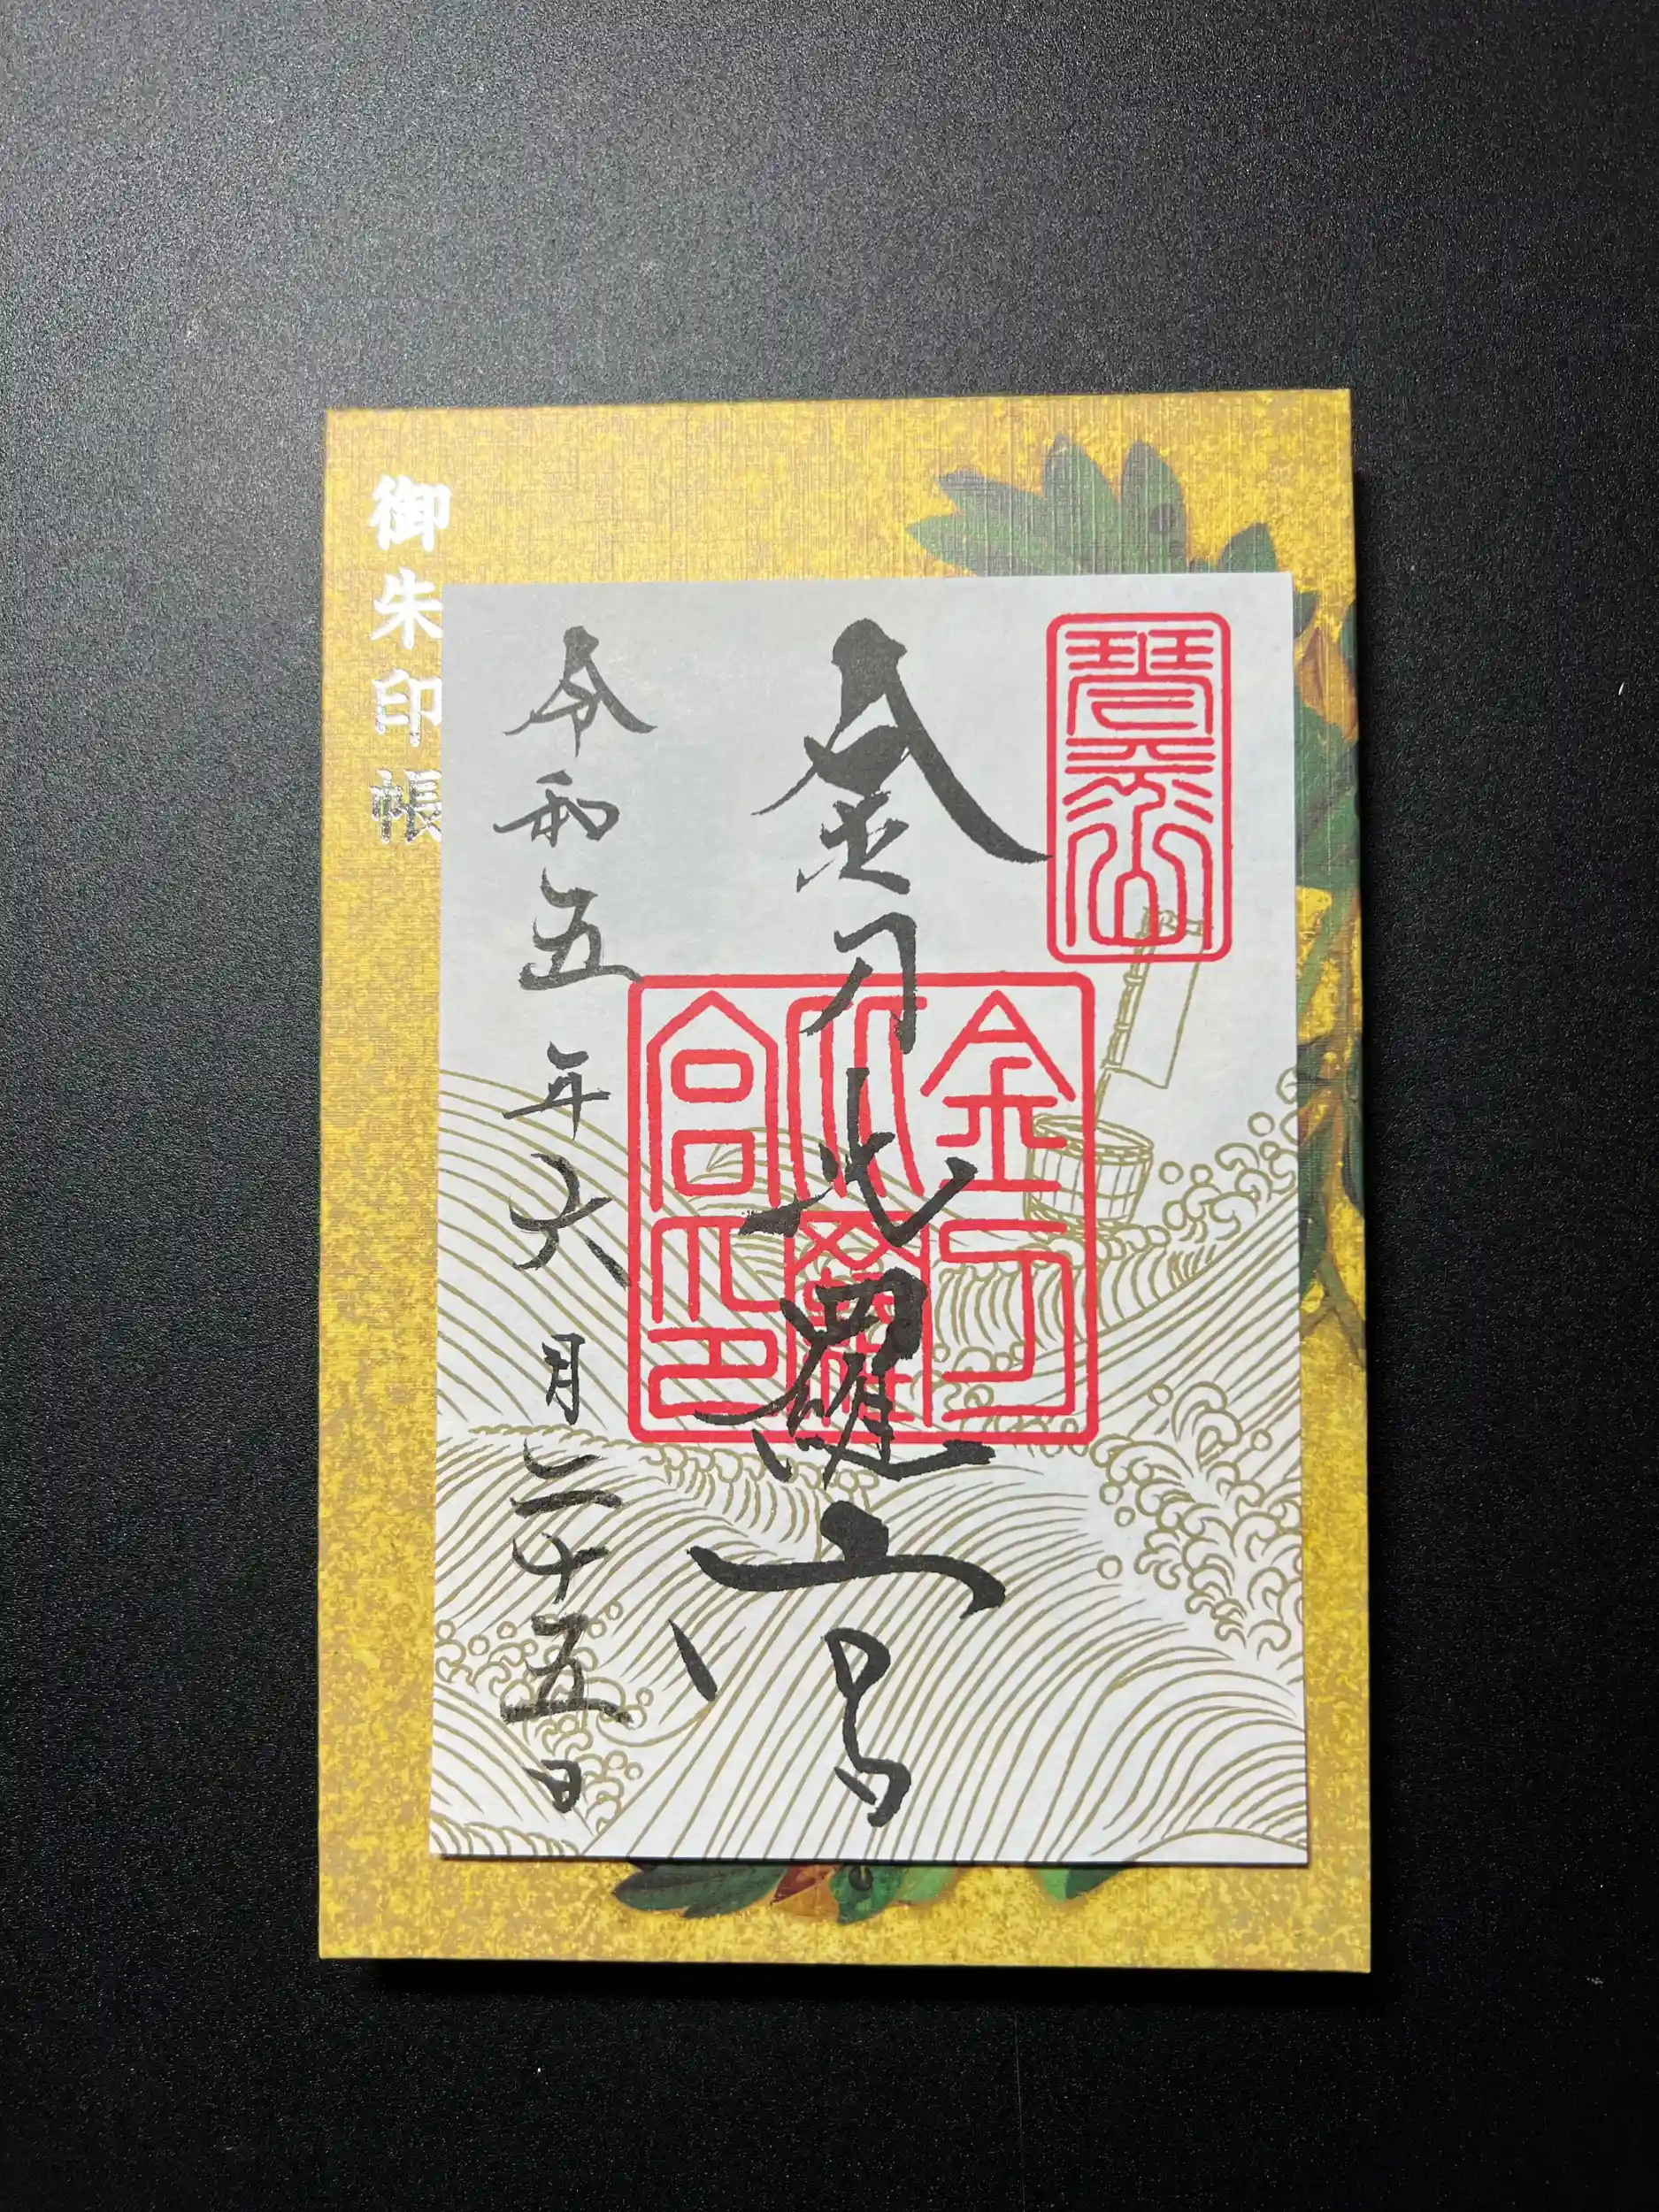 琴平山
金刀比羅宮
金刀
比羅
宮印
令和五年六月二十五日
御朱印帳